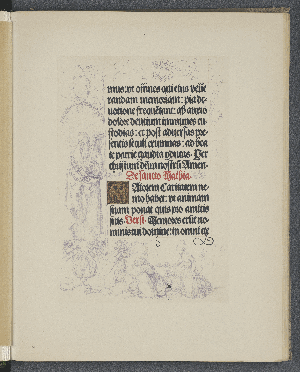 mus: ut omnes qui eius vene
randam memoriam: pia de-
votione frequentant: ab omni
dolore dentium immunes cu
stodias: et post adversas pre
sentis seculi erumnas: ad bea
te patrie gaudia perducas. Per
christum dominum nostrum Amen
De sancto Mathia.
Maiorem Caritatem ne
mo habet: ut animam
suam ponat quis pro amicis
suis. Versi. Memores erunt no-
minis tui domine: in omni ge